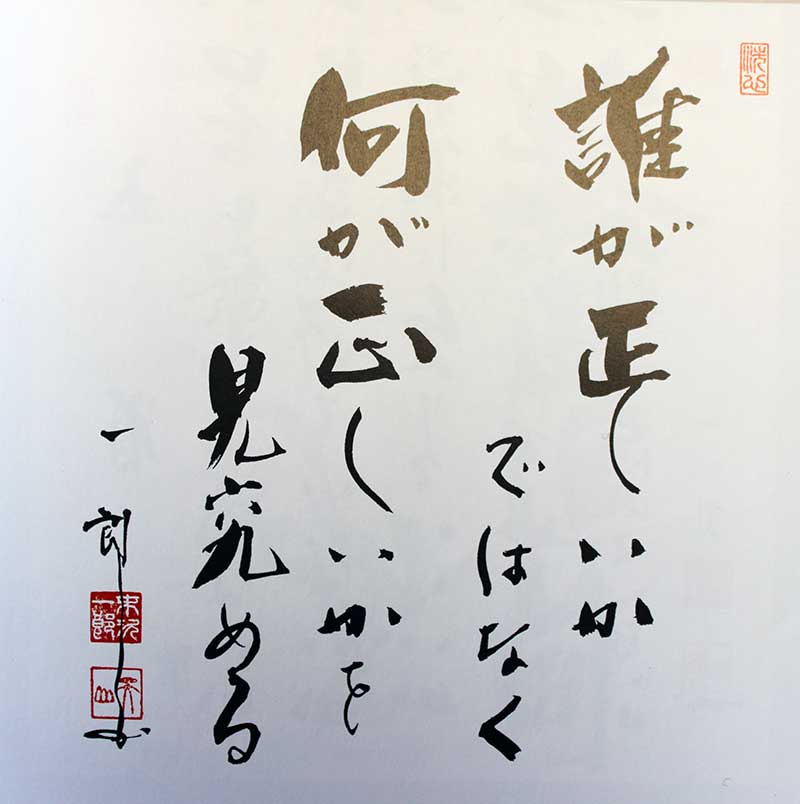 誰が正しいか
ではなく
何が正しいかを
見究める
一郎